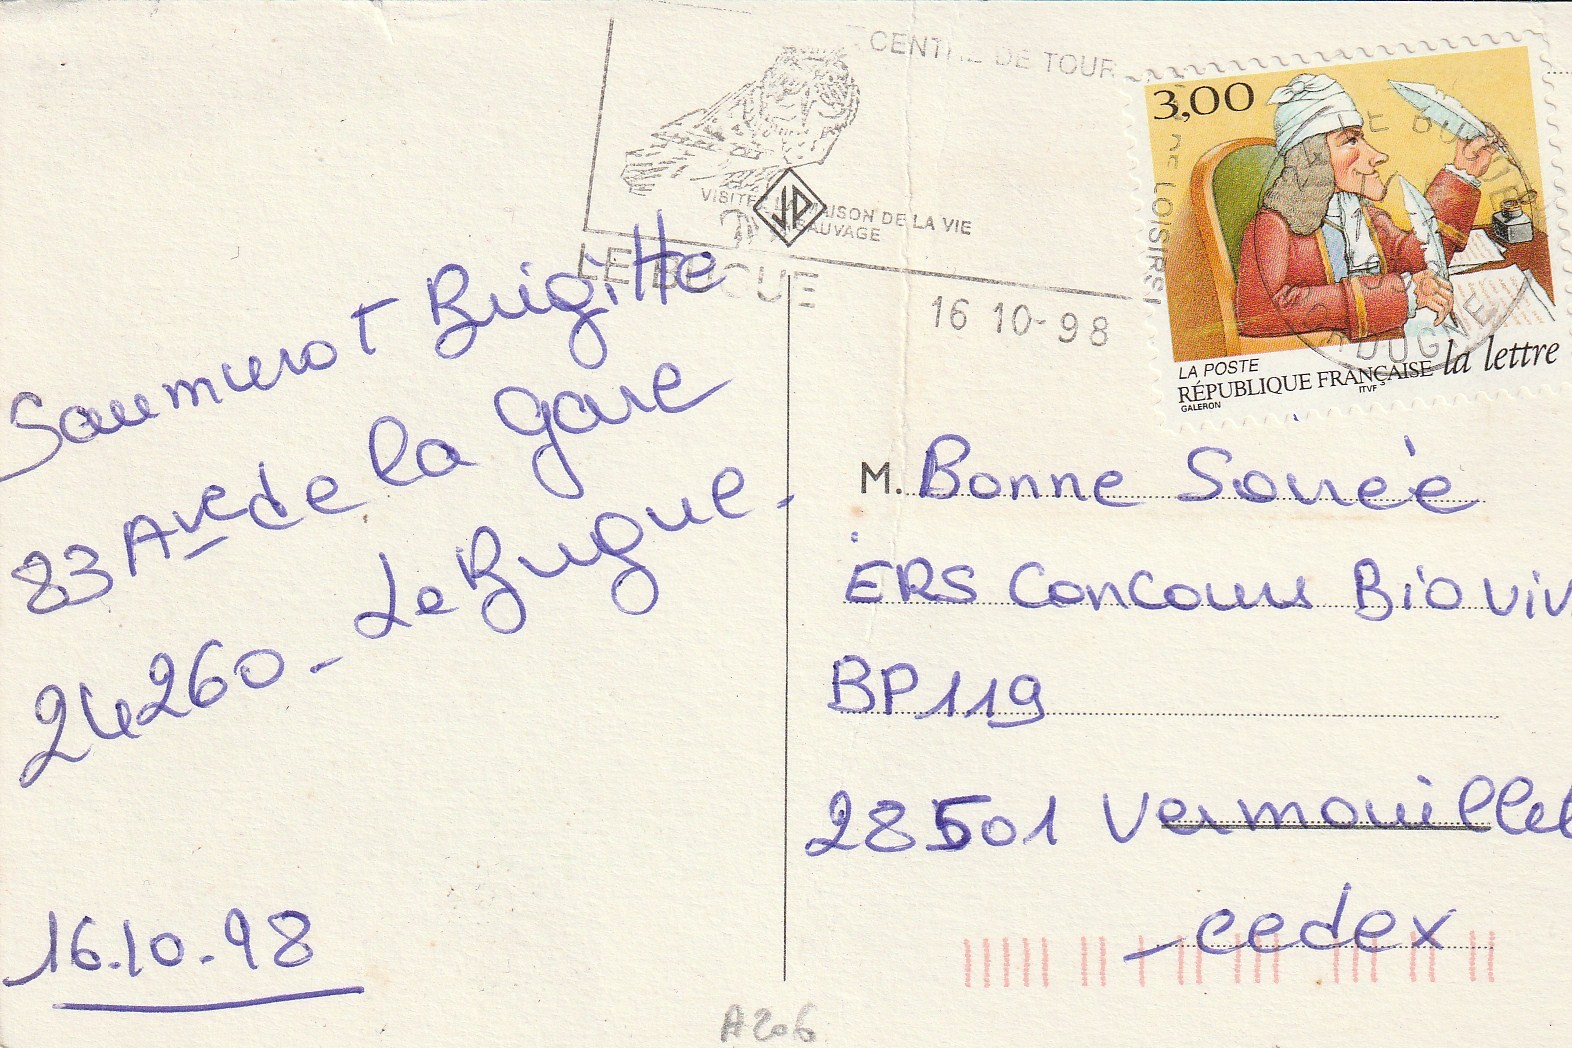 CENTRE DE TOUR
VISITEZ LA MAISON DE LA VIE
SAUVAGE
LE BUGUE
16 10-98
DE LOISIRS
LE BUGUE
DORDOGNE
3,00
LA POSTE
RÉPUBLIQUE FRANÇAISE
la lettre
GALERON
ITVF
Saumurot Brigitte
83 Ave de la gare
24260 - Le Bugue.
16.10.98
M. Bonne Soirée
ERS Concours Bio viv
BP 119
28501 Vernouillet
- cedex
A206